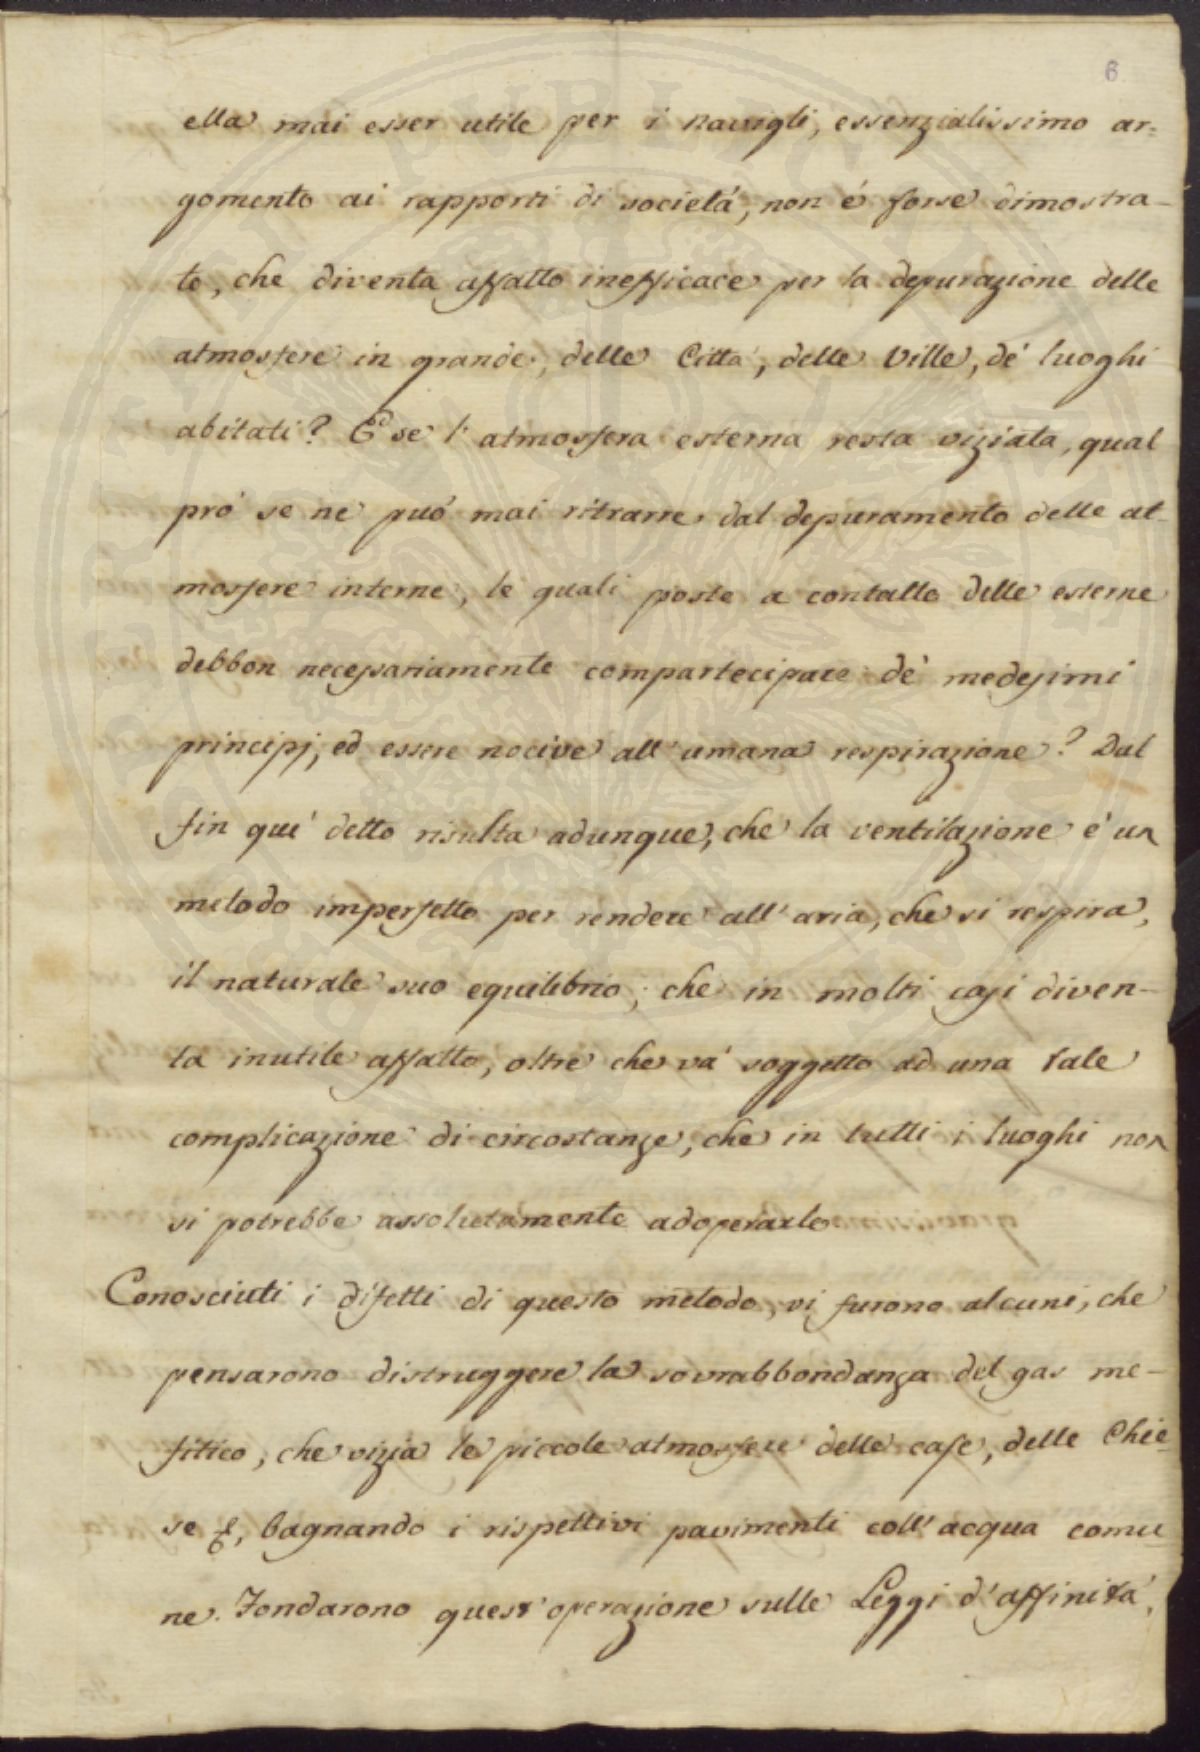 6
ella mai esser utile per i navigli, essenzialissimo ar=
gomento ai rapporti di societá, non é forse dimostra-
to, che diventa affatto inefficace per la depurazione delle
atmosfere in grande, delle Cittá, delle Ville, de' luoghi
abitati? E se l'atmosfera esterna resta viziata, qual
pró se ne puó mai ritrarre dal depuramento delle at-
mosfere interne, le quali poste a contatto delle esterne
debbon necessariamente compartecipare de' medesimi
principj, ed essere nocive all'umana respirazione? Dal
fin qui' detto risulta adunque, che la ventilazione é un
metodo imperfetto per rendere all'aria, che si respira,
il naturale suo equilibrio; che in molti casi diven-
ta inutile affatto, oltre che vá soggetto ad una tale
complicazione di circostanze, che in tutti i luoghi non
si potrebbe assolutamente adoperarlo
Conosciuti i difetti di questo metodo, vi furono alcuni, che
pensarono distruggere la sovrabbondanza del gas me-
fitico, che vizia le piccole atmosfere delle case, delle Chie
se &, bagnando i rispettivi pavimenti coll'acqua comu
ne. Fondarono quest'operazione sulle Leggi d'affinitá,